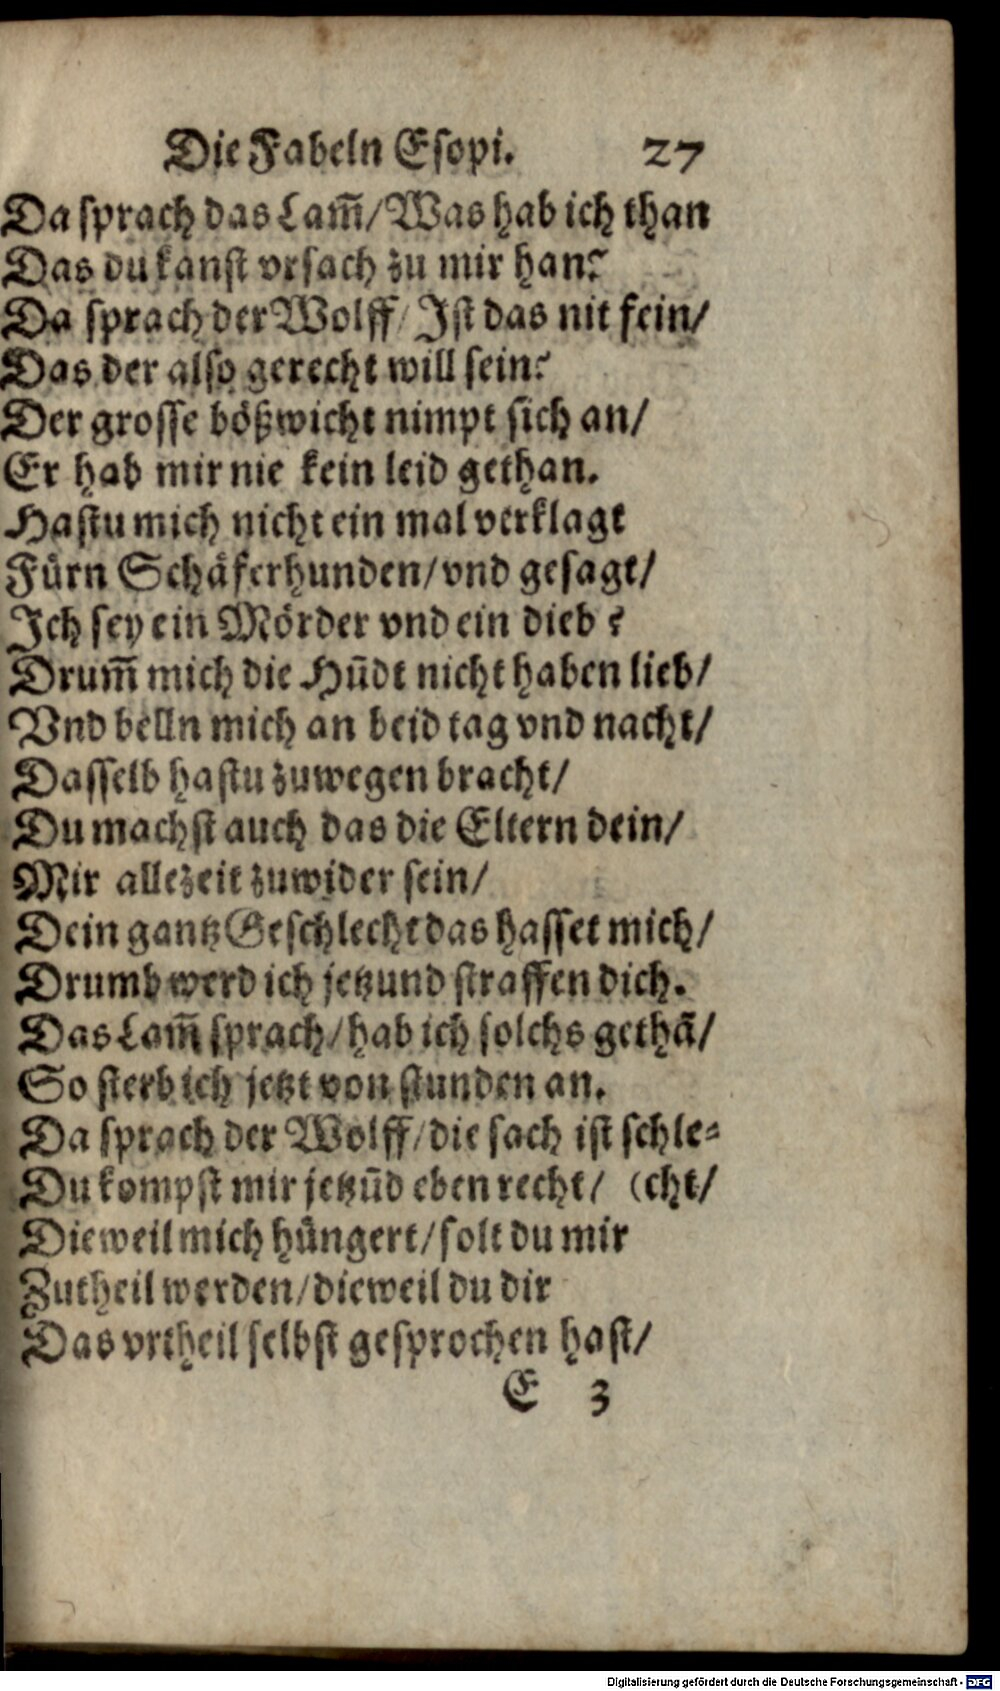 Die Fabeln Esopi. 27
Da sprach das Lam̃/Was hab ich than
Das du kanst vrsach zu mir han?
Da sprach der Wolff/Ist das nit fein/
Das der also gerecht will sein?
Der grosse bößwicht nimpt sich an/
Er hab mir nie kein leid gethan.
Hastu mich nicht ein mal verklagt
Fürn Schäferhunden/vnd gesagt/
Ich sey ein Mörder vnd ein dieb?
Drum̃ mich die Hũdt nicht haben lieb/
Vnd belln mich an beid tag vnd nacht/
Dasselb hastu zuwegen bracht/
Du machst auch das die Eltern dein/
Mir allezeit zuwider sein/
Dein gantz Geschlecht das hasset mich/
Drumb werd ich jetzund straffen dich.
Das Lam̃ sprach/hab ich solchs gethã/
So sterb ich jetzt von stunden an.
Da sprach der Wolff/die sach ist schle-
Du kompst mir jetzũd eben recht/ (cht/
Dieweil mich hüngert/solt du mir
Zutheil werden/dieweil du dir
Das vrtheil selbst gesprochen hast/
E 3
Digitalisierung gefördert durch die Deutsche Forschungsgemeinschaft - DFG